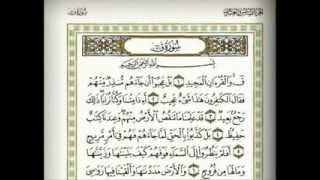 سُورَةُ ق
بِسْمِ اللَّهِ الرَّحْمَٰنِ الرَّحِيمِ
قٓ وَالْقُرْآنِ الْمَجِيدِ ١ بَلْ عَجِبُوا أَن جَاءَهُم مُّنذِرٌ مِّنْهُمْ
فَقَالَ الْكَافِرُونَ هَٰذَا شَيْءٌ عَجِيبٌ ٢ أَءِذَا مِتْنَا وَكُنَّا تُرَابًا ذَٰلِكَ
رَجْعٌ بَعِيدٌ ٣ قَدْ عَلِمْنَا مَا تَنقُصُ الْأَرْضُ مِنْهُمْ وَعِندَنَا كِتَابٌ
حَفِيظٌ ٤ بَلْ كَذَّبُوا بِالْحَقِّ لَمَّا جَاءَهُمْ فَهُمْ فِي أَمْرٍ مَّرِيجٍ
٥ أَفَلَمْ يَنظُرُوا إِلَى السَّمَاءِ فَوْقَهُمْ كَيْفَ بَنَيْنَاهَا وَزَيَّنَّاهَا
وَمَا لَهَا مِن فُرُوجٍ ٦ وَالْأَرْضَ مَدَدْنَاهَا وَأَلْقَيْنَا فِيهَا رَوَاسِيَ